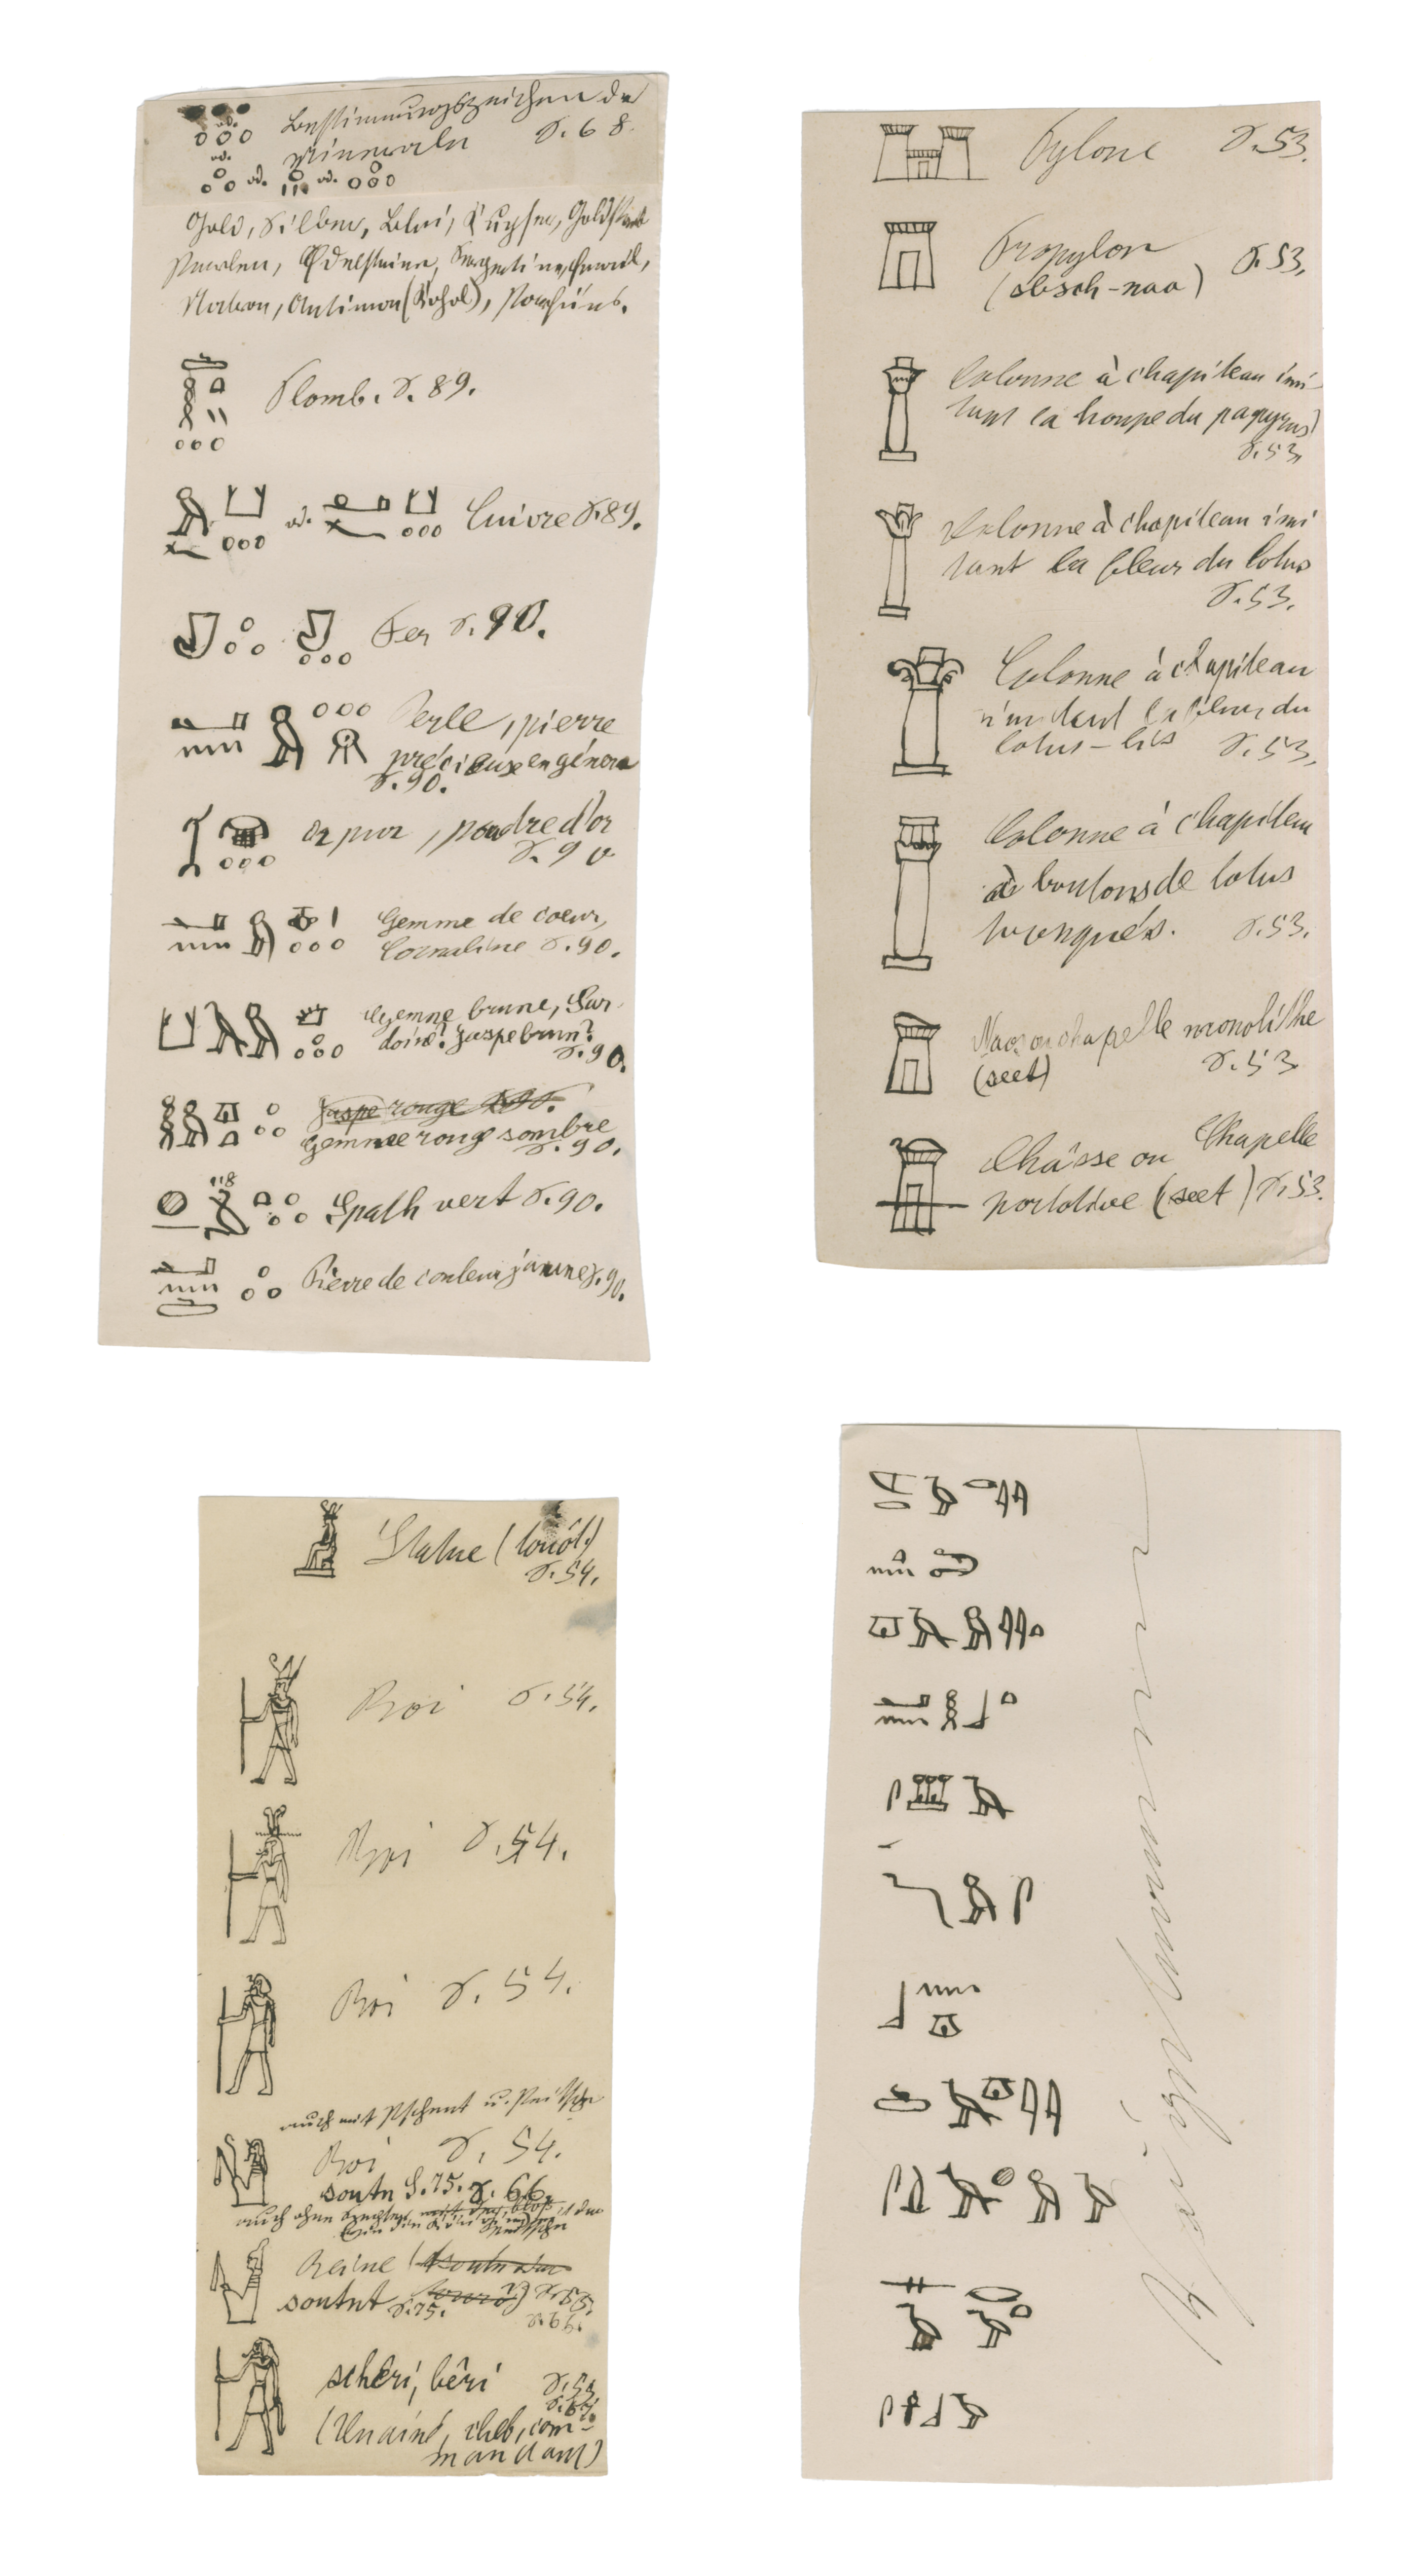 Bestimmungszeichen der
Mineralen S. 68.
od.
od.
od. od.
Gold, Silber, Blei, Kupfer,
Perlen, Edelsteine,
Natron, Antimon (Kohol),
Plomb. S. 89.
od. Cuivre S. 89.
Fer S. 90.
Perle, pierre
précieuse en généra
S. 90.
or pur, poudre d'or
S. 90
Gemme de coeur,
Cornaline S. 90.
Gemme brune, Sar-
doine? Jaspe brun?
S. 90.
Jaspe rouge S. 90.
Gemme rouge sombre
S. 90.
Spath vert S. 90.
Pierre de couleur jaune S. 90.
Pylone S. 53.
Propylon S. 53.
(sbsch-naa)
Colonne à chapiteau imi-
tant la houpe du papyrus)
S. 53.
Colonne à chapiteau imi
tant la fleur du lotus
S. 53.
Colonne à chapiteau
imitant la fleur du
lotus-lis S. 53.
Colonne à chapiteau
à boutons de lotus
tronqués. S. 53.
Naos ou chapelle monolithe
(seet) S. 53
Châsse ou Chapelle
portative (seet) S. 53.
Statue (touôt)
S. 54.
Roi S. 54.
Roi S. 54.
Roi S. 54.
auch mit Pschent u. Peitsche
Roi S. 54.
soutn S. 75. S. 66.
auch ohne
Reine
soutnt S. 75.
S. 66.
schêri, bêri
(Un aîné, chef, com-
mandant)